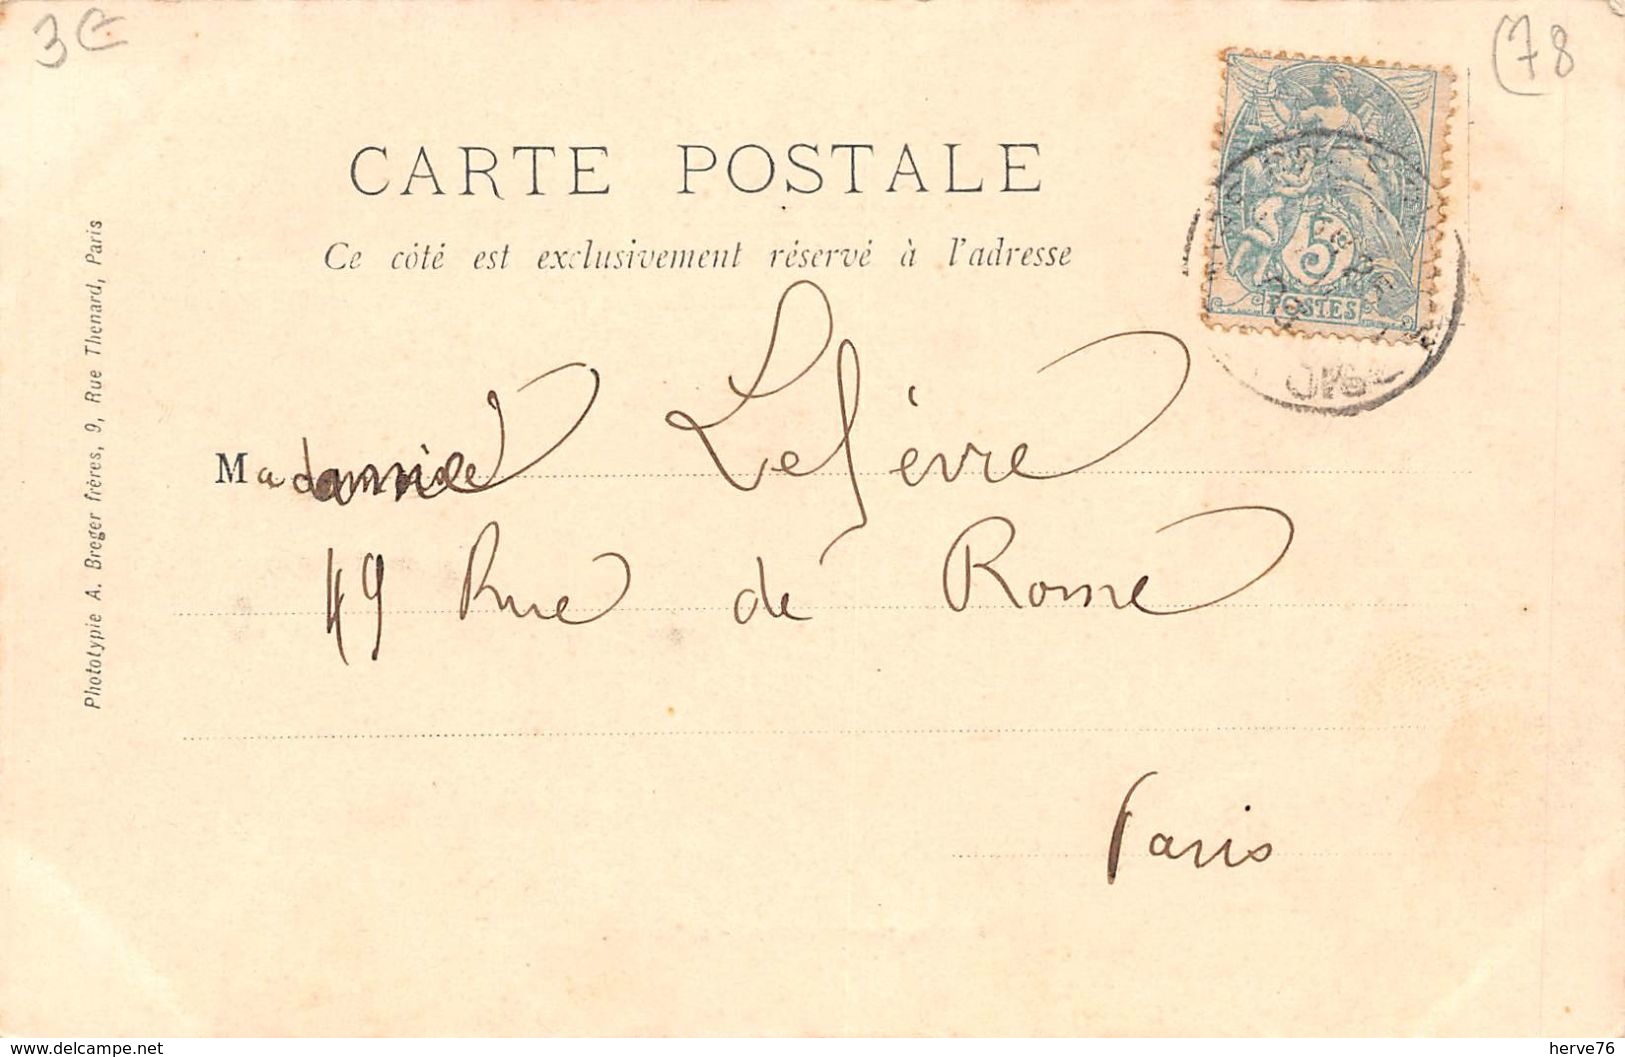 3€
(78
CARTE POSTALE
Ce côté est exclusivement réservé à l'adresse
5
POSTES
Madame Lefèvre
49 Rue de Rome
Paris
Phototypie A. Breger frères, 9, Rue Thenard, Paris
www.delcampe.net
herve76